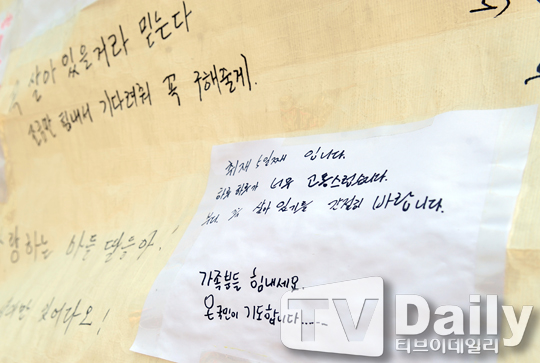 꼭 살아 있을거라 믿는다
조금만 힘내서 기다려줘 꼭 구해줄게.
취재 5일째 입니다.
하루 하루가 너무 고통스럽습니다.
부디 꼭 살아 있기를 간절히 바랍니다.
가족분들 힘내세요.
온국민이 기도합니다.....
사랑하는 아들 딸들아.
보여다오!
TV Daily
티브이데일리